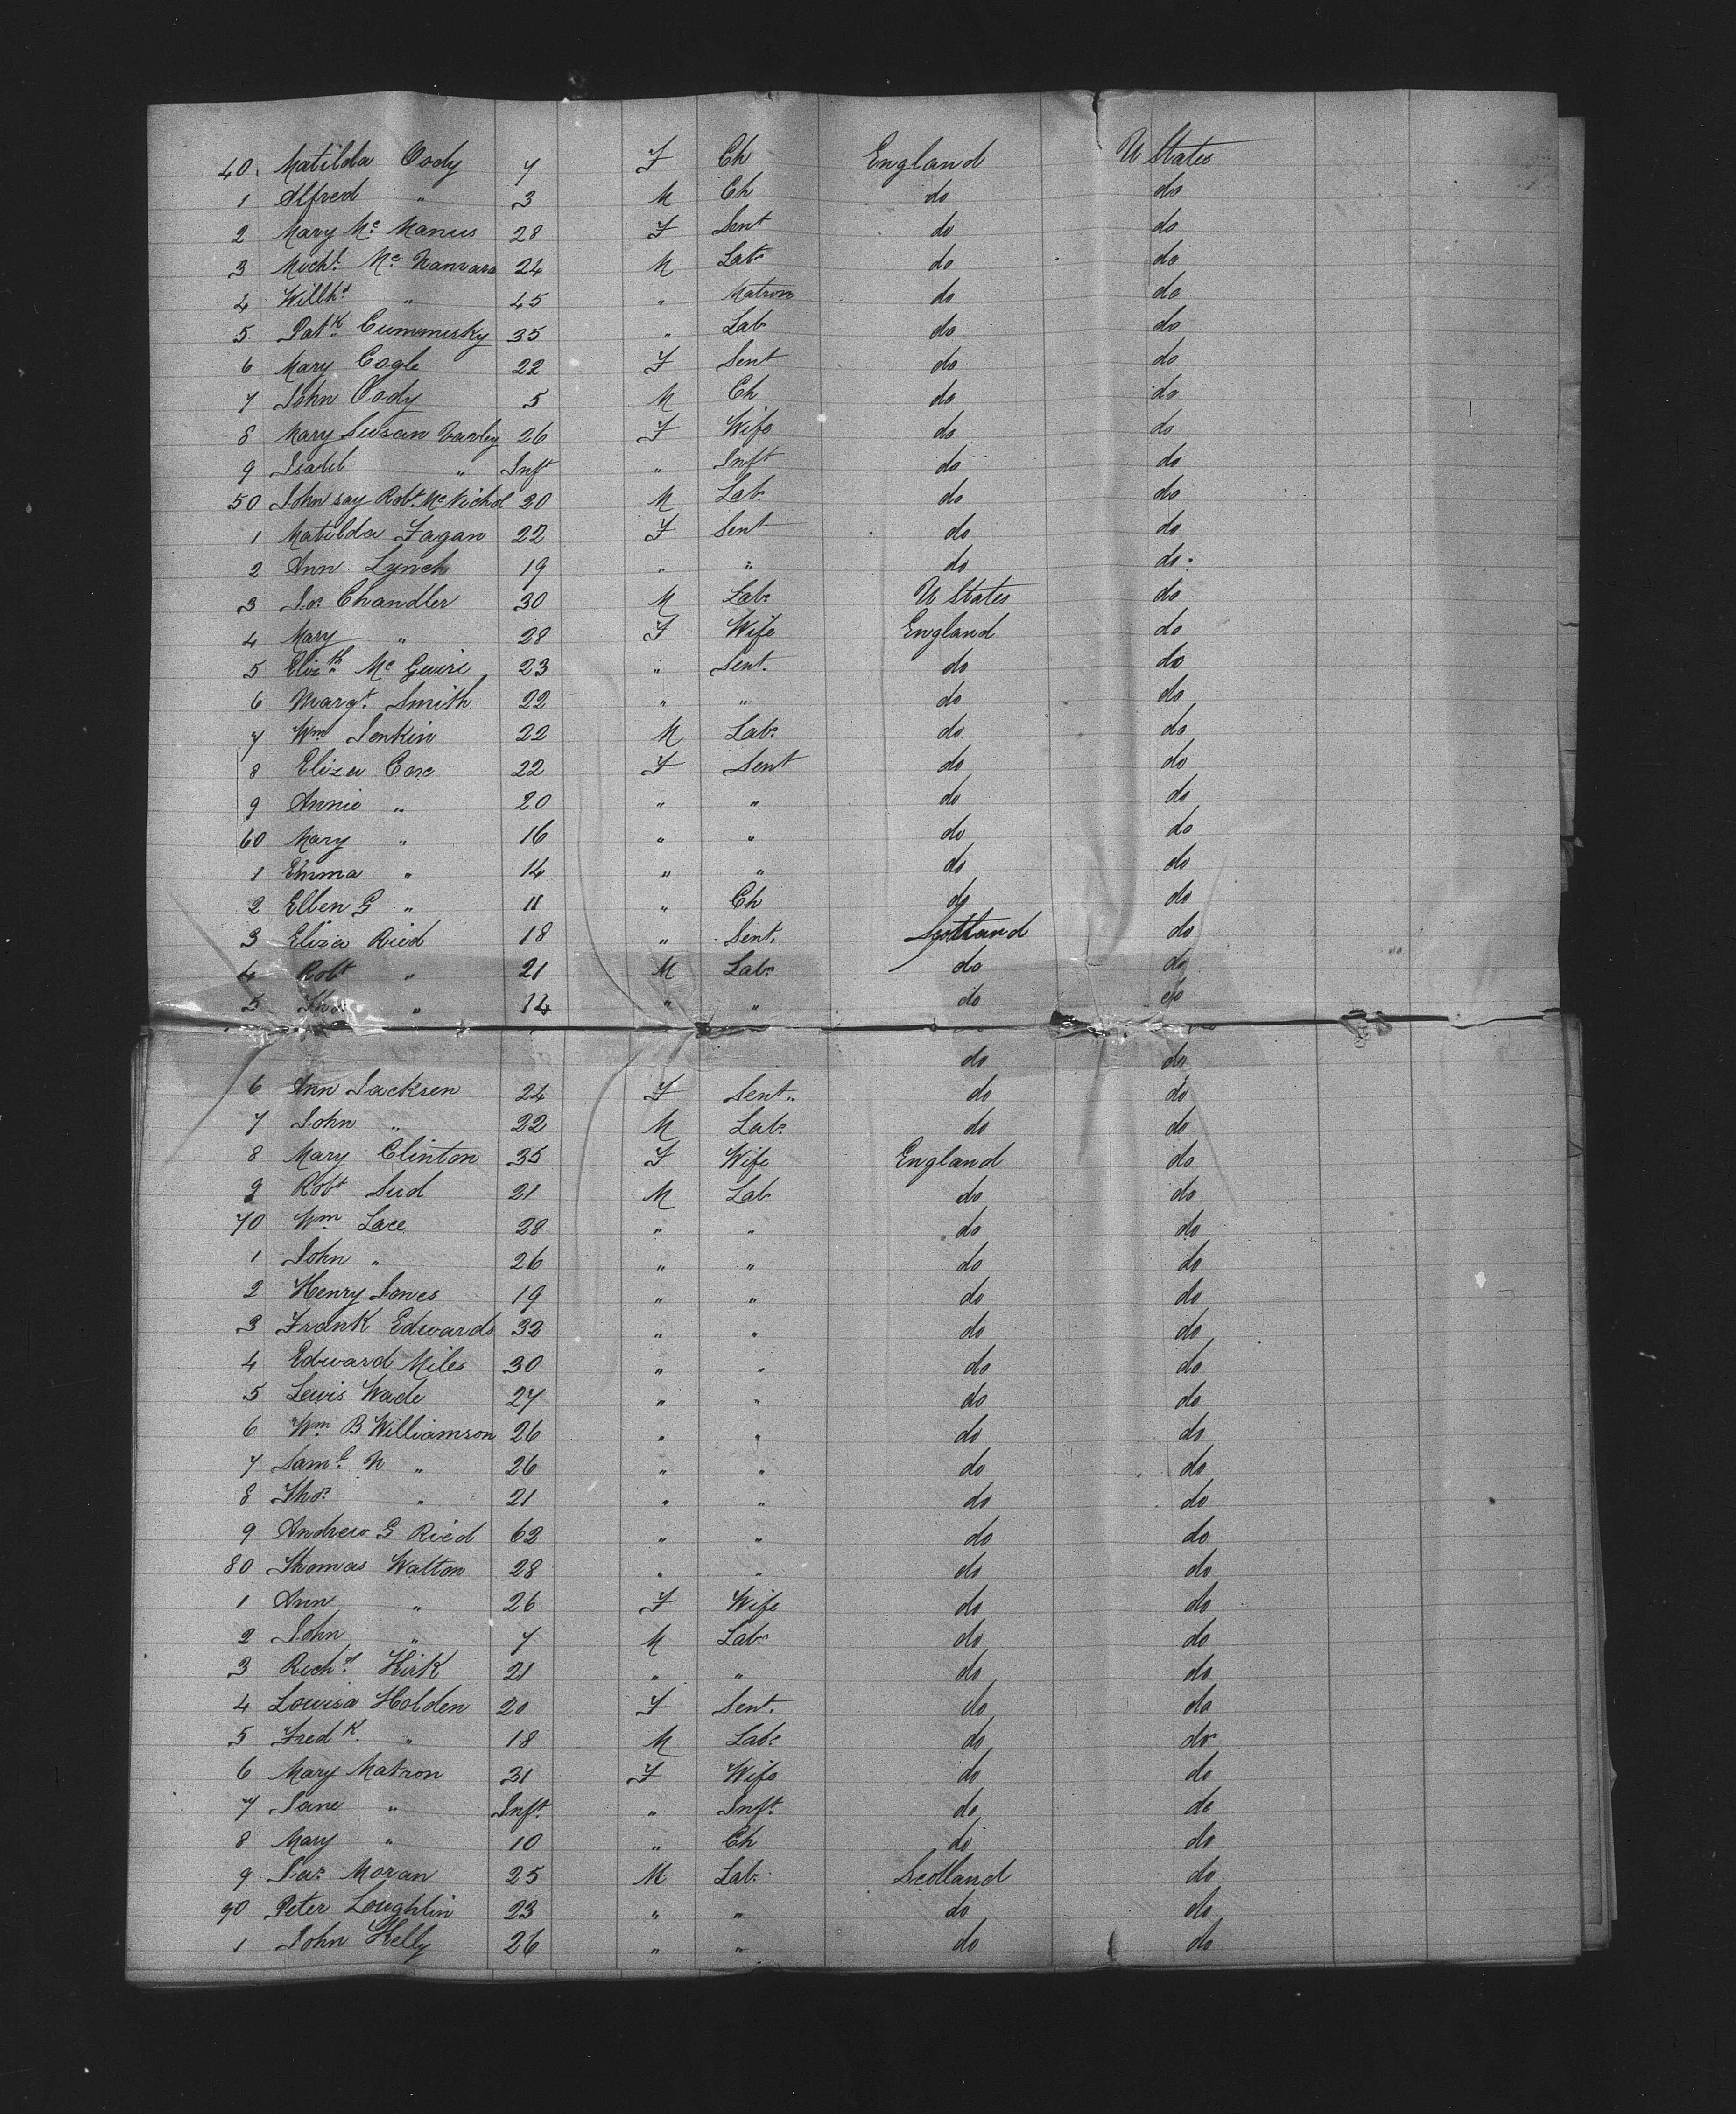 40. Matilda Cody 7 F Ch England U States
1 Alfred " 3 M Ch do do
2 Mary Mc Manus 28 F Sent do do
3 Michl. Mc Namara 24 M Labr do do
4 " 45 " Matron do do
5 Patk Cummisky 35 " Lab do do
6 Mary Cogle 22 F Sent do do
7 John Cody 5 M Ch do do
8 Mary Susan Varley 26 F Wife do do
9 Isabel " Inft " Inft do do
50 John say Robt. McNichol 20 M Lab. do do
1 Matilda Fagan 22 F Sent do do
2 Ann Lynch 19 " " do do
3 Jas Chandler 30 M Labr U States do
4 Mary " 28 F Wife England do
5 Elizth Mc Guire 23 " Sent. do do
6 Margt. Smith 22 " " do do
7 Wm Jenkin 22 M Labr do do
8 Eliza 22 F Sent do do
9 Annie " 20 " " do do
60 Mary " 16 " " do do
1 Emma " 14 " " do do
2 Ellen G " 11 " Ch do do
3 Eliza Ried 18 " Sent. Scotland do
4 Robt " 21 M Labr do do
5 Thos " 14 " " do do
do do
6 Ann Jacksen 24 F Sent. do do
7 John " 22 M Labr do do
8 Mary Clinton 35 F Wife England do
9 Robt Sud 21 M Lab. do do
70 Wm Lace 28 " " do do
1 John " 26 " " do do
2 Henry Jones 19 " " do do
3 Frank Edwards 32 " " do do
4 Edward Miles 30 " " do do
5 Lewis Wade 27 " " do do
6 Wm B Williamson 26 " " do do
7 Saml. N " 26 " " do do
8 Thos " 21 " " do do
9 Andrew G Ried 62 " " do do
80 Thomas Walton 28 " " do do
1 Ann " 26 F Wife do do
2 John " 7 M Labr do do
3 Richd. Kirk 21 " " do do
4 Louisa Holden 20 F Sent. do do
5 Fredk. " 18 M Labr do do
6 Mary Matron 31 F Wife do do
7 Jane " Inft. " Inft. do do
8 Mary " 10 " Ch do do
9 Jas Moran 25 M Lab. Scotland do
90 Peter Loughlin 23 " " do do
1 John Kelly 26 " " do do